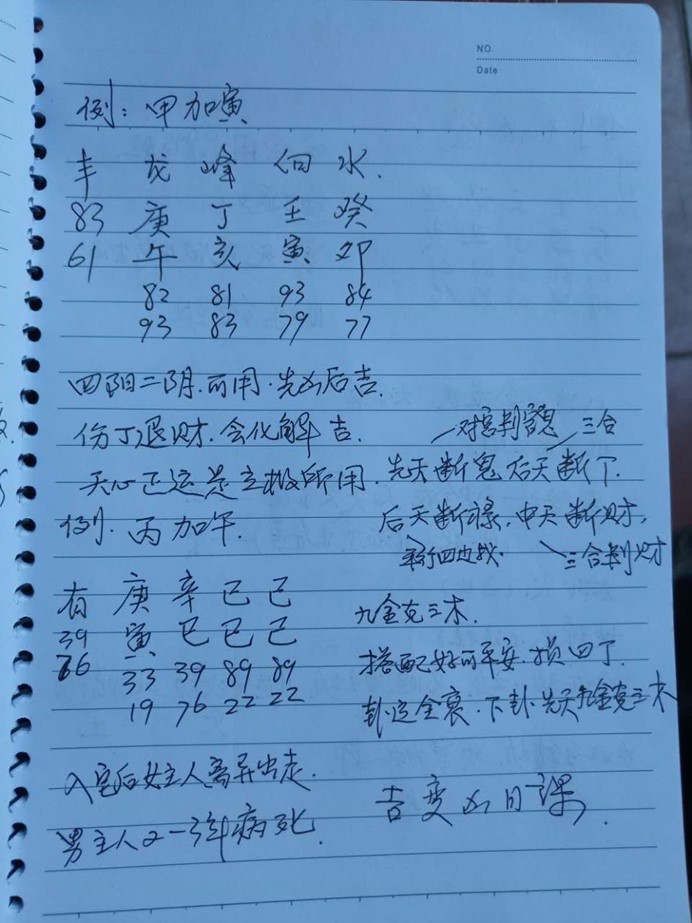 NO.
Date
例：甲加寅
丰 龙 峰 向 水.
83 庚 丁 壬 癸
61 午 亥 寅 卯
82 81 93 84
93 83 79 77
四阳二阴.可用.先凶后吉.
伤丁退财.会化解吉.
对宫判 三合
天心正运是立极所用.先天断鬼后天断丁.
后天断禄,中天断财,
例.丙加午.
四边找. 三合判财
有 庚 辛 己 己
39 寅 巳 巳 巳
66 33 39 89 89
19 76 22 22
九金克三木.
搭配好可平安.损四丁.
卦运全衰.下卦.先天九金克三木
入宅后女主人离异出走.
吉变凶日课.
男主人2-3年病死.